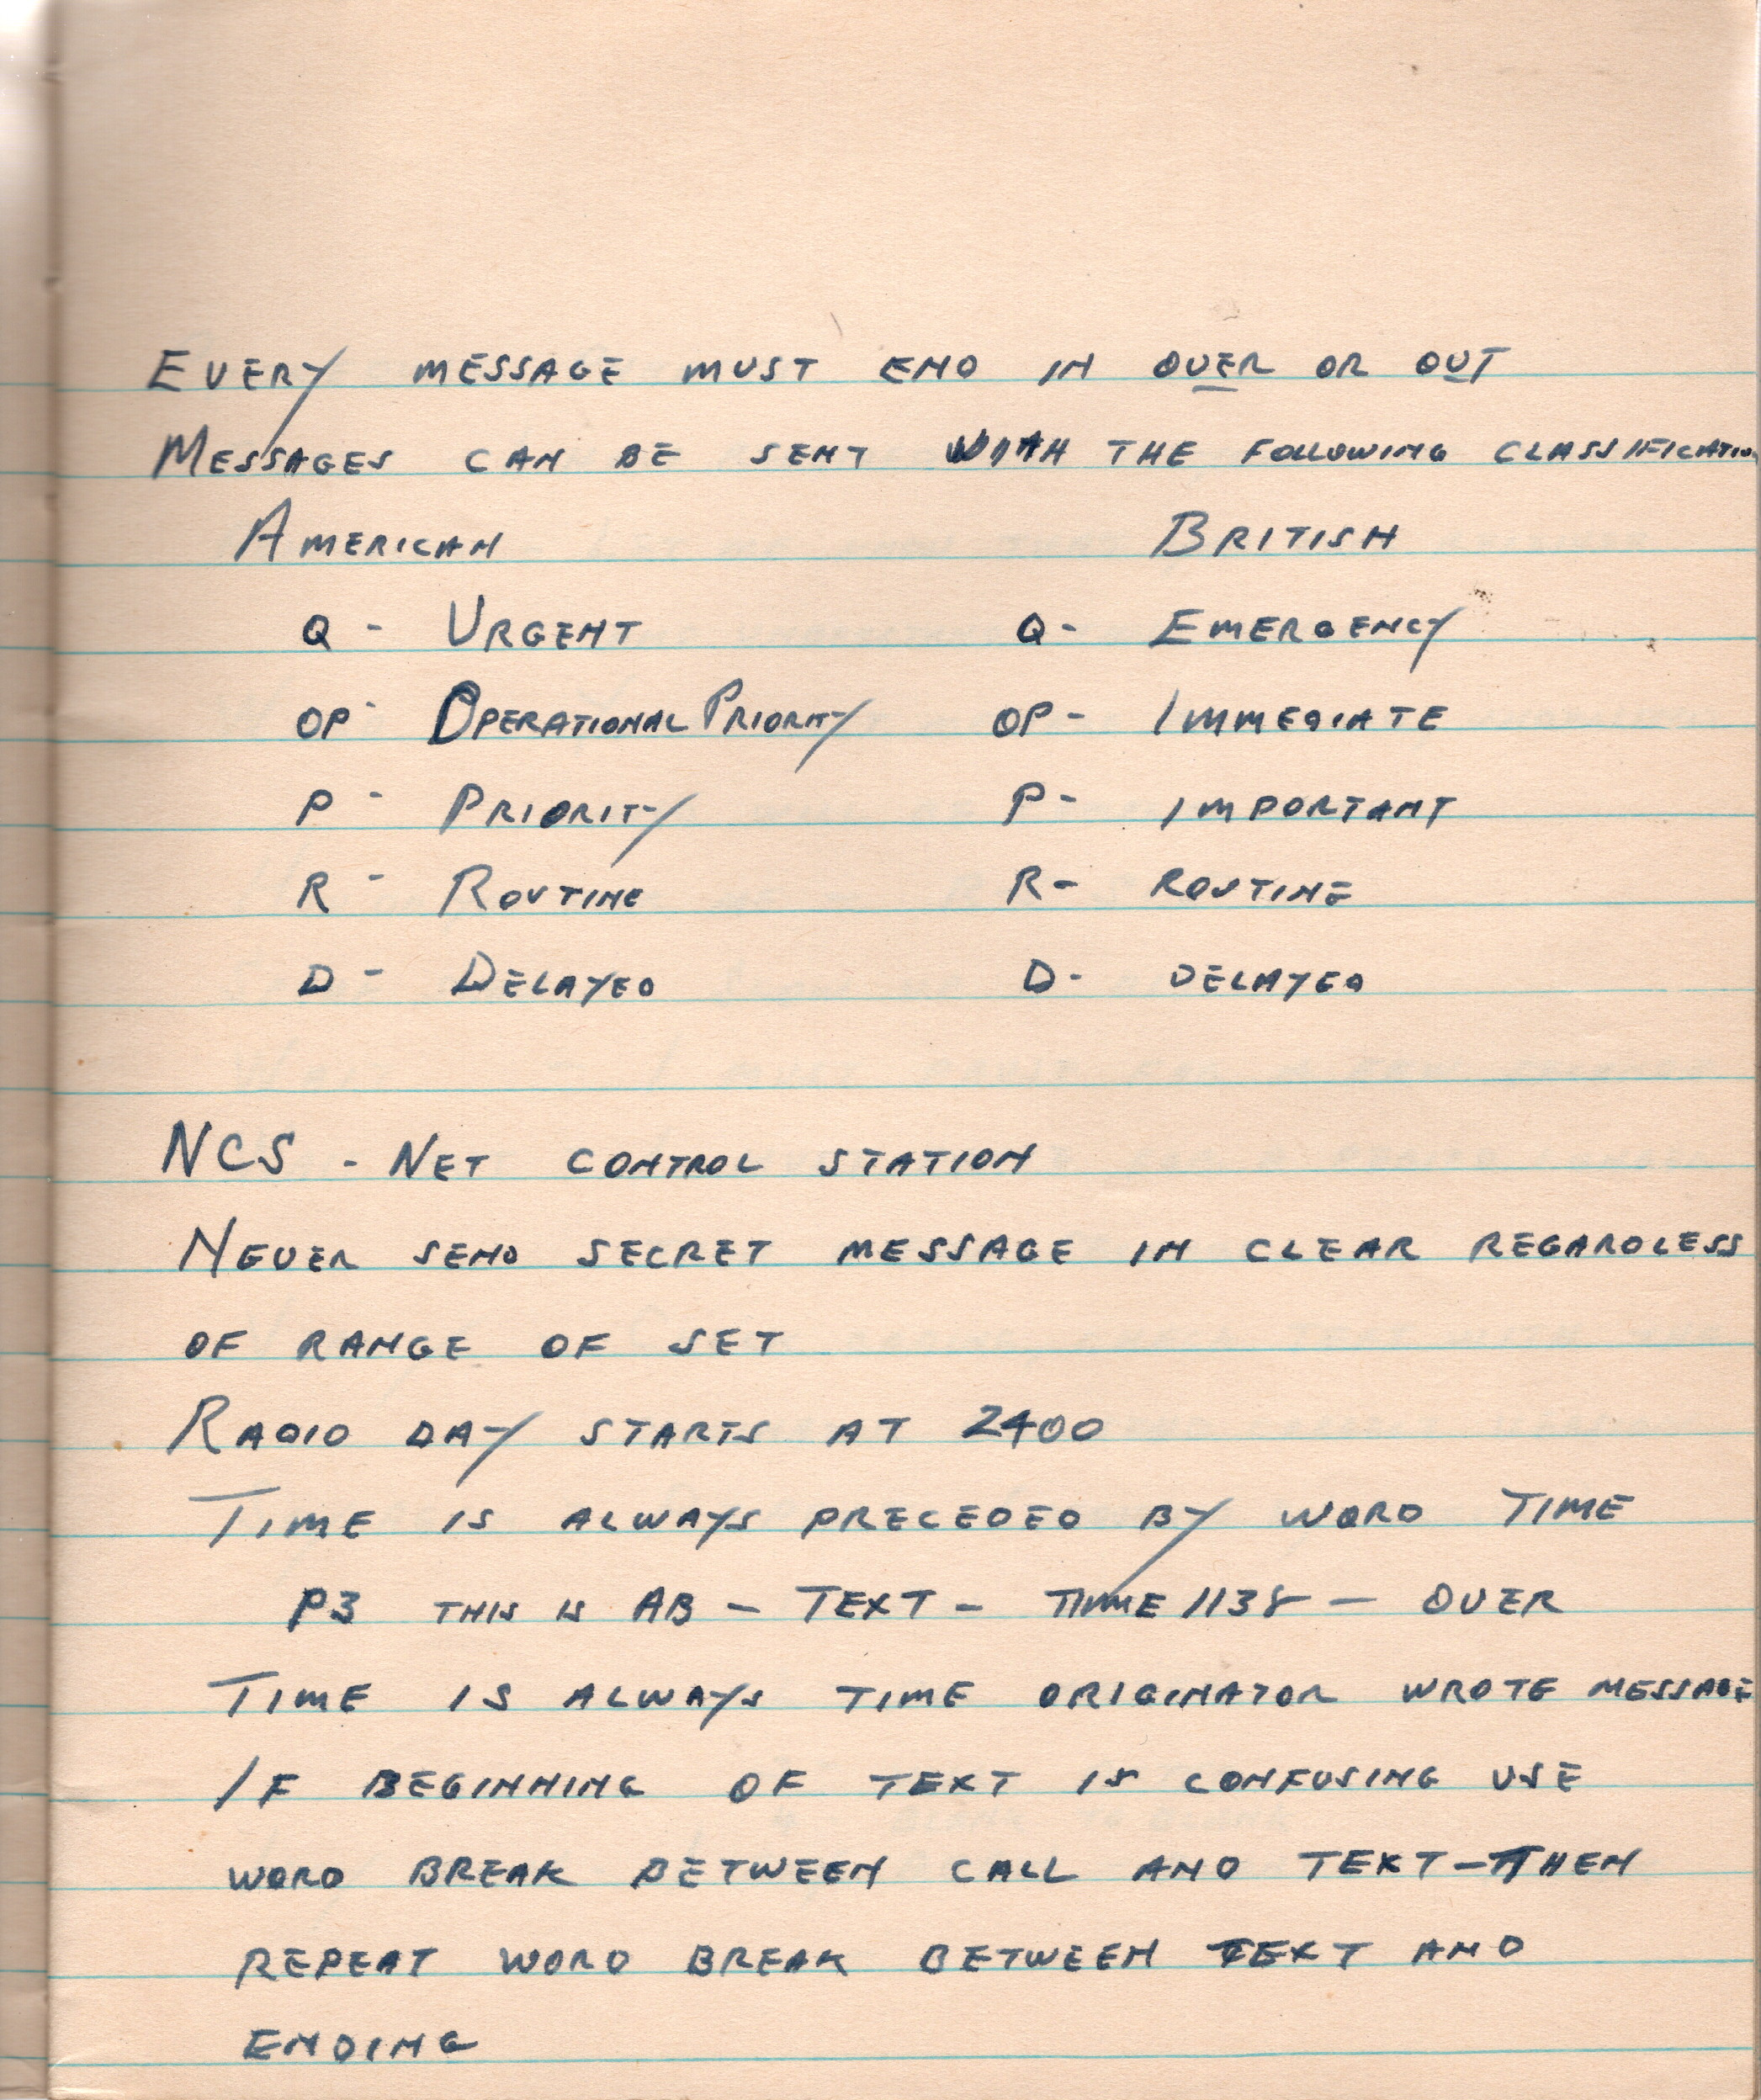 EVERY MESSAGE MUST END IN OVER OR OUT
MESSAGES CAN BE SENT WITH THE FOLLOWING CLASSIFICATION
AMERICAN BRITISH
Q - URGENT Q - EMERGENCY
OP - OPERATIONAL PRIORITY OP - IMMEDIATE
P - PRIORITY P - IMPORTANT
R - ROUTINE R - ROUTINE
D - DELAYED D - DELAYED
NCS - NET CONTROL STATION
NEVER SEND SECRET MESSAGE IN CLEAR REGARDLESS
OF RANGE OF SET
RADIO DAY STARTS AT 2400
TIME IS ALWAYS PRECEDED BY WORD TIME
P3 THIS IS AB - TEXT - TIME 1138 - OVER
TIME IS ALWAYS TIME ORIGINATOR WROTE MESSAGE
IF BEGINNING OF TEXT IS CONFUSING USE
WORD BREAK BETWEEN CALL AND TEXT - THEN
REPEAT WORD BREAK BETWEEN TEXT AND
ENDING